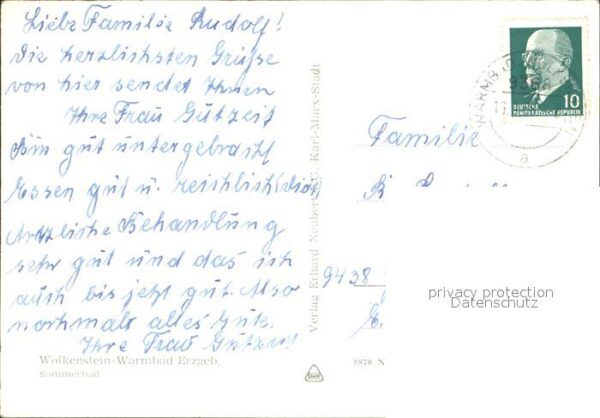 Liebe Familie Rudolf!
Die herzlichsten Grüße
von hier sendet Ihnen
Ihre Frau Gutzeit
Bin gut untergebracht
Essen gut u. reichlich (Diät)
Ärtzliche Behandlung
sehr gut und das ich
auch bis jetzt gut. Also
nochmals alles Gute.
Ihre Frau Gutzeit
Wolkenstein-Warmbad Erzgeb.
Sommerbad
Verlag Erhard Neubert KG. Karl-Marx-Stadt
DEUTSCHE
DEMOKRATISCHE REPUBLIK
10
WARMB
a
Familie
R
9438
privacy protection
Datenschutz
5878 N